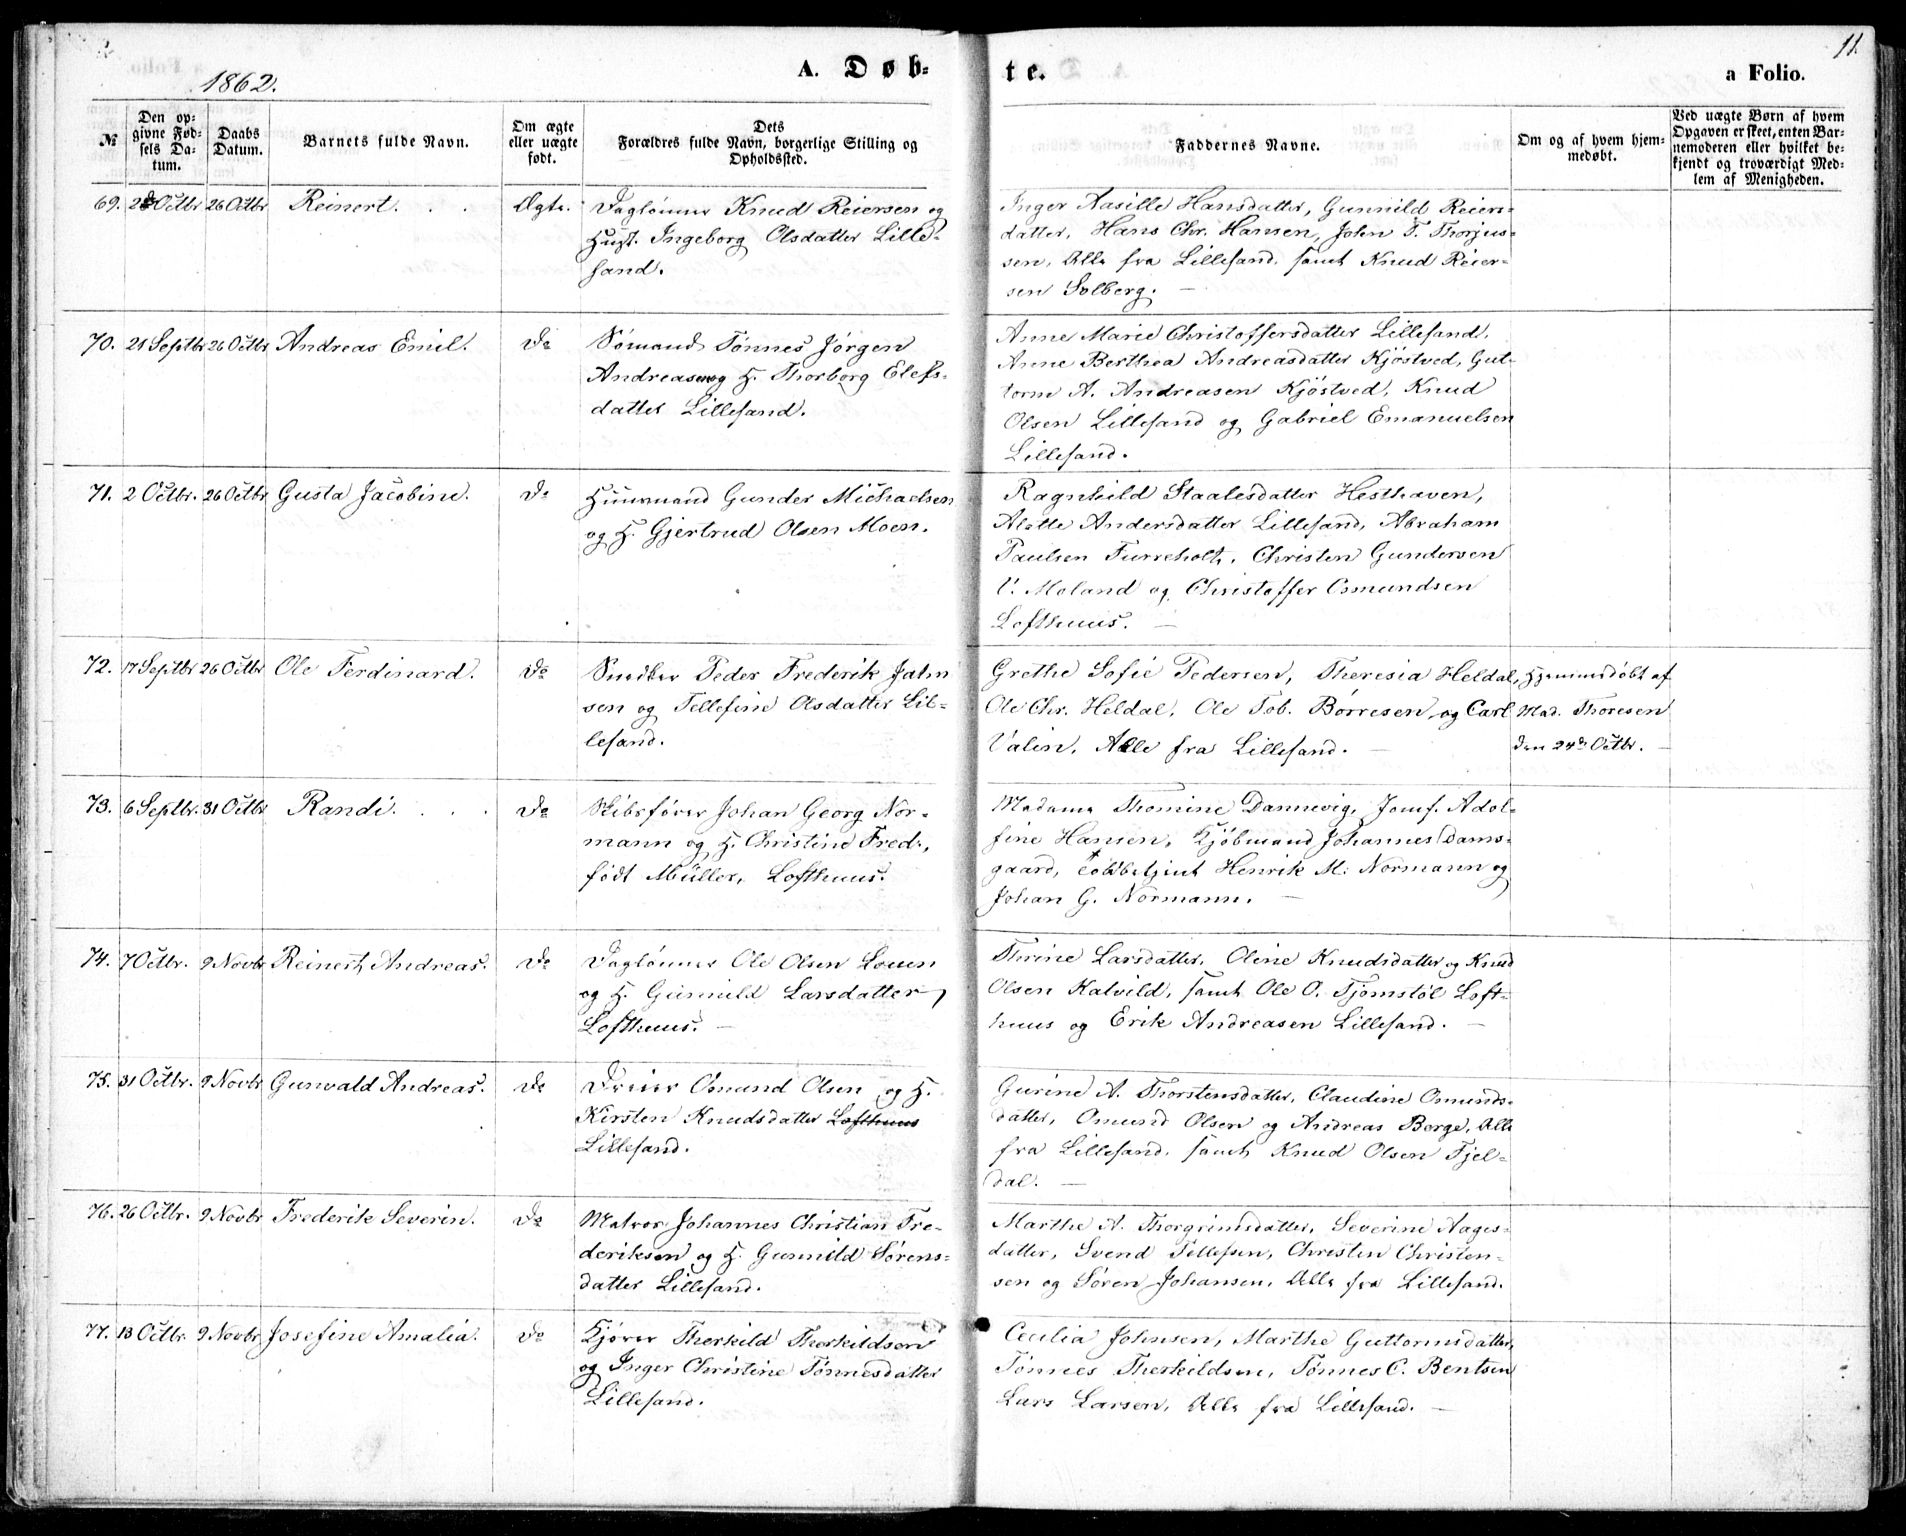 11.
1862.
A. Døb=
te.
a Folio.
№
Den op-
givne Fød-
sels Da-
tum.
Daabs
Datum.
Barnets fulde Navn.
Om ægte
eller uægte
født.
Dets
Forældres fulde Navn, borgerlige Stilling og
Opholdssted.
Faddernes Navne.
Om og af hvem hjem-
medøbt.
Ved uægte Børn af hvem
Opgaven er skeet, enten Bar-
nemoderen eller hvilket be-
kjendt og troværdigt Med-
lem af Menigheden.
69. Octbr 26 Octbr Reinert. . . Ægte.
Daglønner Knud Reiersen og
Hust. Ingeborg Olsdatter Lille-
sand.
Inger Aasille Hansdatter, Gunnild Reiers-
datter, Hans Chr. Hansen, John T. Thorjus-
sen, Alle fra Lillesand, samt Knud Reier-
sen Solberg. —
70. 21 Septbr 26 Octbr Andreas Emil. Do
Sømand Tønnes Jørgen
Andreasen og H. Thorborg Elefs-
datter Lillesand.
Anne Marie Christoffersdatter Lillesand,
Anne Berthea Andreasdatter Kjøstved, Gut-
torm A. Andreasen Kjøstved, Knud
Olsen Lillesand og Gabriel Emanuelsen
Lillesand.
71. 2 Octbr. 26 Octbr Gusta Jacobine. Do
Huusmand Gunder Michaelsen
og H. Gjertrud Olsen Moen.
Ragnhild Staalesdatter Hesthaven,
Alette Andersdatter Lillesand, Abraham
Paulsen Furreholt, Christen Gundersen
V. Moland og Christoffer Osmundsen
Lofthuus. —
72. 17 Septbr 26 Octbr Ole Ferdinard. Do
Snedker Peder Frederik Jahn
sen og Tellefine Olsdatter Lil-
lesand.
Grethe Sofie Pedersen, Theresia Heldal,
Ole Chr. Heldal, Ole Tob. Børresen og Carl
Valin, Alle fra Lillesand. —
Hjemmedøbt af
Mad. Thoresen
den 24de Octbr. —
73. 6 Septbr. 31 Octbr Randi. . . . Do
Skibsfører Johan Georg Nor-
mann og H. Christine Fred.,
født Müller, Lofthuus.
Madame Thomine Dannevig, Jomf. Adol-
fine Hansen, Kjøbmand Johannes Dams-
gaard, Toldbetjent Henrik M. Normann og
Johan G. Normann. —
74. 7 Octbr. 9 Novbr Reinert Andreas. Do
Daglønner Ole Olsen Louen
og H. Gunnild Larsdatter,
Lofthuus. —
Thrine Larsdatter, Oline Knudsdatter og Knud
Olsen Kalvild, samt Ole O. Tjomstøl Loft-
huus og Erik Andreasen Lillesand. —
75. 31 Octbr. 9 Novbr Gunvald Andreas. Do
Dreier Osmund Olsen og H.
Kirsten Knudsdatter Lofthuus
Lillesand.
Gurine A. Thorstensdatter, Claudine Osmunds-
datter, Osmund Olsen og Andreas Berge, Alle
fra Lillesand, samt Knud Olsen Tjel-
dal. —
76. 26 Octbr. 9 Novbr Frederik Severin. Do
Matros Johannes Christian Fre-
deriksen og H. Gunnild Sørens-
datter Lillesand.
Marthe A. Thorgrimsdatter, Severine Aages-
datter, Svend Tellefsen, Christen Christen-
sen og Søren Johansen, Alle fra Lillesand.
77. 13 Octbr. 9 Novbr Josefine Amalia. Do
Kjører Therkild Therkildsen
og Inger Christine Tønnesdatter
Lillesand.
Cecilia Johnsen, Marthe Guttormsdatter,
Tønnes Therkildsen, Tønnes C. Bentsen
Lars Larsen, Alle fra Lillesand. —